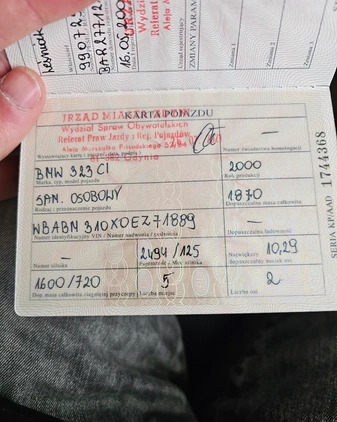 Leśniak
990725
BAR27712
16.05.200
ZMIANY PARAM
Zmiana 1
KARTA POJAZDU
URZĄD MIASTA GDYNI
Wydział Spraw Obywatelskich
Referat Praw Jazdy i Rej. Pojazdów
Aleja Marszałka Piłsudskiego
Gdynia
—
Numer świadectwa homologacji
BMW 323 CI
2000
Marka, typ, model pojazdu
Rok produkcji
SAM. OSOBOWY
1870
Rodzaj i przeznaczenie pojazdu
Dopuszczalna masa całkowita
WBABM310X0EZ71889
—
Numer identyfikacyjny VIN / Numer nadwozia / podwozia
Dopuszczalna ładowność
—
2494/125
Największy dopuszczalny nacisk osi
10,29
Numer silnika
Pojemność / Moc silnika
1600/720
5
2
Dop. masa całkowita ciągniętej przyczepy
Liczba miejsc
Liczba osi
SERIA KP/AAD 1744368